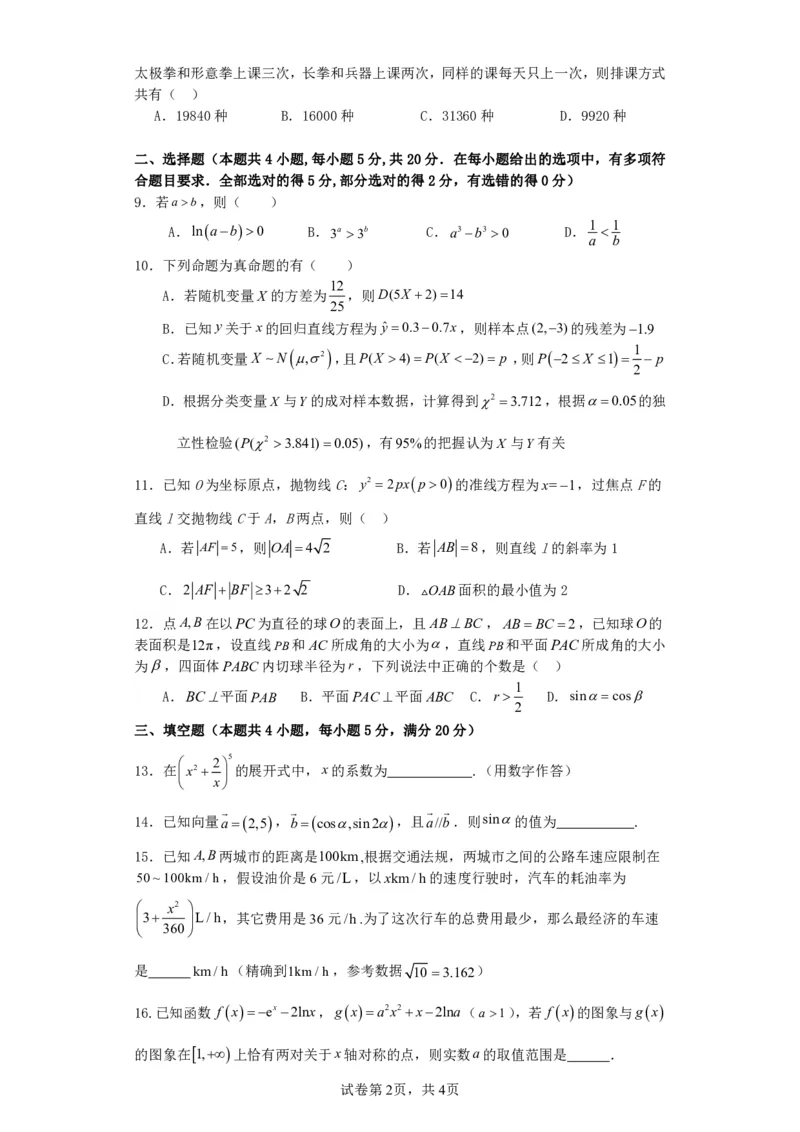 太极拳和形意拳上课三次，长拳和兵器上课两次，同样的课每天只上一次，则排课方式
共有（ ）
A．19840种 B．16000种 C．31360种 D．9920种
二、选择题（本题共4小题,每小题5分,共20分．在每小题给出的选项中，有多项符
合题目要求．全部选对的得5分,部分选对的得2分，有选错的得0分）
9．若a>b，则（ ）
A．ln(a−b)>0 B．3^a>3^b C．a3−b3>0 D．1/a<1/b
10．下列命题为真命题的有（ ）
A．若随机变量X的方差为12/25，则D(5X+2)=14
B．已知y关于x的回归直线方程为ŷ=0.3−0.7x，则样本点(2,−3)的残差为−1.9
C.若随机变量X~N(μ,σ²)，且P(X>4)=P(X<−2)=p，则P(−2≤X≤1)=1/2−p
D．根据分类变量X与Y的成对样本数据，计算得到χ²=3.712，根据α=0.05的独
立性检验(P(χ²>3.841)=0.05)，有95%的把握认为X与Y有关
11．已知O为坐标原点，抛物线C：y²=2px(p>0)的准线方程为x=−1，过焦点F的
直线l交抛物线C于A，B两点，则（ ）
A．若|AF|=5，则|OA|=4 2 B．若|AB|=8，则直线l的斜率为1
C．2|AF|+|BF|≥3+2 2 D．△OAB面积的最小值为2
12．点A,B在以PC为直径的球O的表面上，且AB⊥BC，AB=BC=2，已知球O的
表面积是12π，设直线PB和AC所成角的大小为α，直线PB和平面PAC所成角的大小
为β，四面体PABC内切球半径为r，下列说法中正确的个数是（ ）
A．BC⊥平面PAB B．平面PAC⊥平面ABC C．r>1/2 D．sinα=cosβ
三、填空题（本题共4小题，每小题5分，满分20分）
13．在(x²+2/x)⁵的展开式中，x的系数为____________.（用数字作答）
14．已知向量a⃗=(2,5)，b⃗=(cosα,sin2α)，且a⃗//b⃗．则sinα的值为___________．
15．已知A,B两城市的距离是100km,根据交通法规，两城市之间的公路车速应限制在
50~100km/h，假设油价是6元/L，以xkm/h的速度行驶时，汽车的耗油率为
(3+x²/360)L/h，其它费用是36元/h.为了这次行车的总费用最少，那么最经济的车速
是______km/h（精确到1km/h，参考数据√10=3.162）
16.已知函数f(x)=−e^x−2lnx，g(x)=a2x²+x−2lna（a>1），若f(x)的图象与g(x)
的图象在[1,+∞)上恰有两对关于x轴对称的点，则实数a的取值范围是______．
试卷第2页，共4页